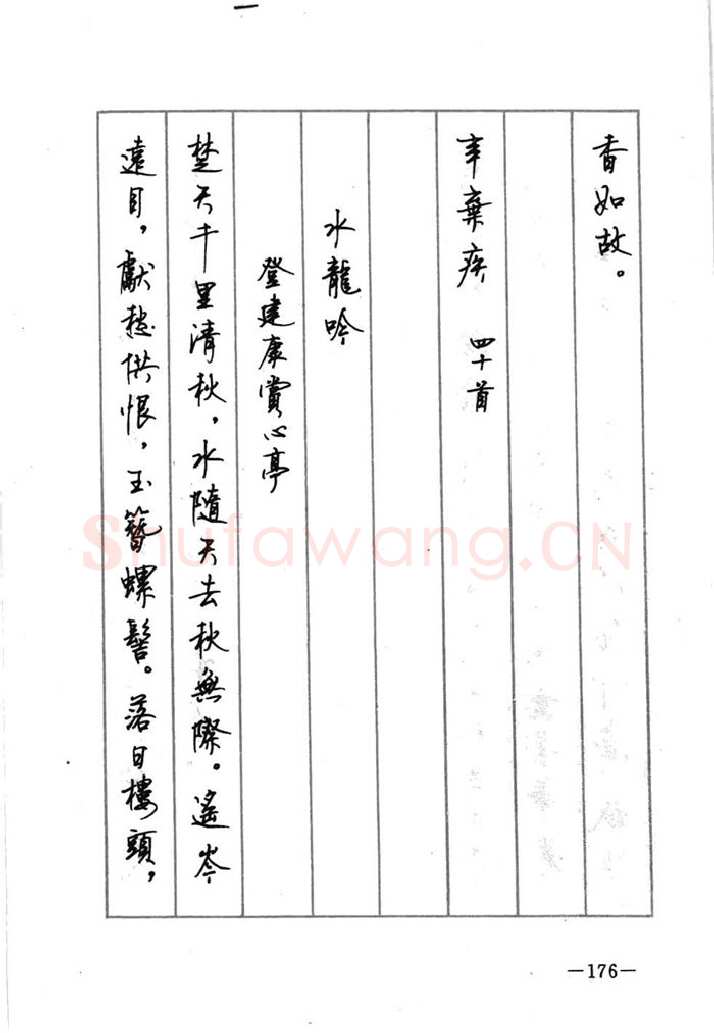 香如故。
辛棄疾 四十首
水龍吟
登建康賞心亭
楚天千里清秋，水隨天去秋無際。遙岑
遠目，獻愁供恨，玉簪螺髻。落日樓頭，
Shufawang.CN
—176—